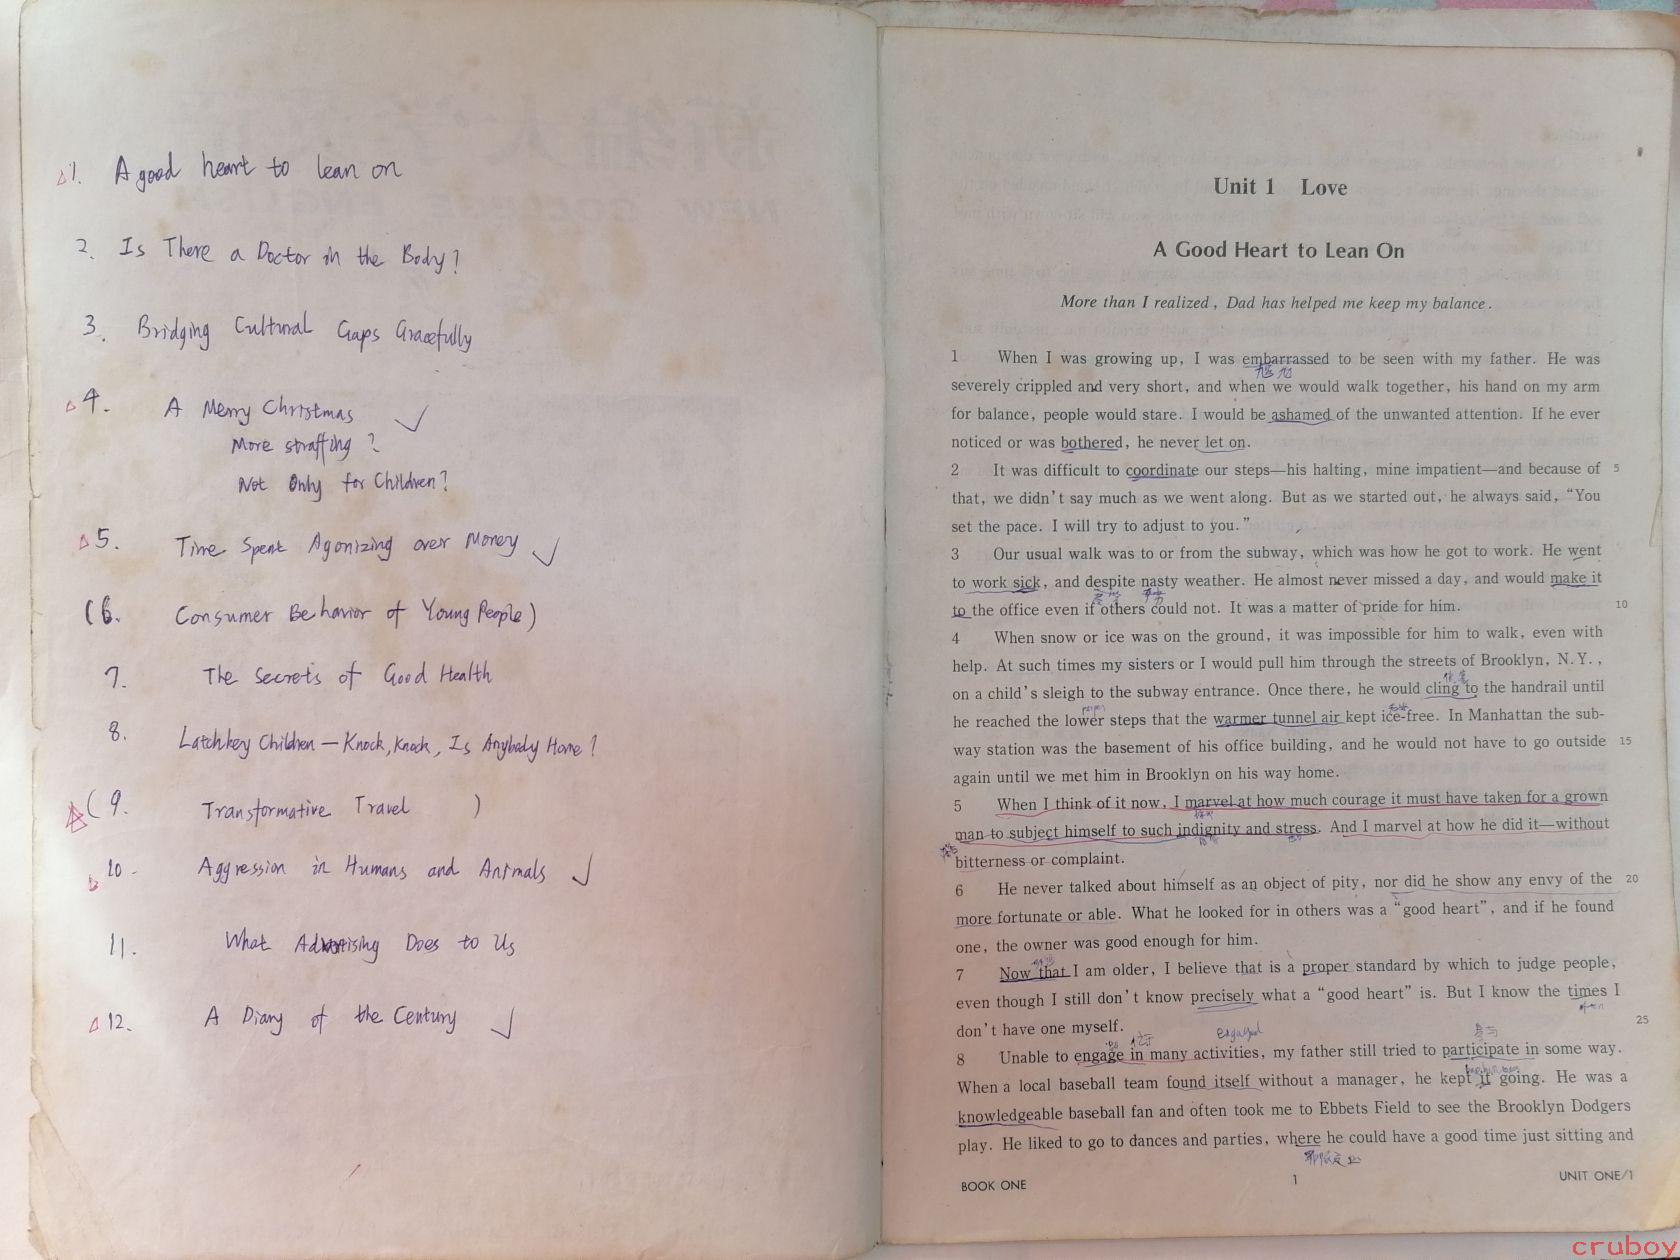 1. A good heart to lean on
2. Is There a Doctor in the Body?
3. Bridging Cultural Gaps Gracefully
4. A Merry Christmas
More straffing?
Not Only for Children?
5. Time Spent Agonizing over Money
(6. Consumer Behavior of Young People)
7. The Secrets of Good Health
8. Latchkey Children — Knock, Knock, Is Anybody Home?
(9. Transformative Travel )
10. Aggression in Humans and Animals
11. What Advertising Does to Us
12. A Diary of the Century
Unit 1 Love
A Good Heart to Lean On
More than I realized, Dad has helped me keep my balance.
1 When I was growing up, I was embarrassed to be seen with my father. He was
尴尬
severely crippled and very short, and when we would walk together, his hand on my arm
for balance, people would stare. I would be ashamed of the unwanted attention. If he ever
noticed or was bothered, he never let on.
2 It was difficult to coordinate our steps—his halting, mine impatient—and because of 5
that, we didn't say much as we went along. But as we started out, he always said, "You
set the pace. I will try to adjust to you."
3 Our usual walk was to or from the subway, which was how he got to work. He went
to work sick, and despite nasty weather. He almost never missed a day, and would make it
to the office even if others could not. It was a matter of pride for him. 10
4 When snow or ice was on the ground, it was impossible for him to walk, even with
help. At such times my sisters or I would pull him through the streets of Brooklyn, N.Y.,
on a child's sleigh to the subway entrance. Once there, he would cling to the handrail until
he reached the lower steps that the warmer tunnel air kept ice-free. In Manhattan the sub-
way station was the basement of his office building, and he would not have to go outside 15
again until we met him in Brooklyn on his way home.
5 When I think of it now, I marvel at how much courage it must have taken for a grown
man to subject himself to such indignity and stress. And I marvel at how he did it—without
bitterness or complaint.
6 He never talked about himself as an object of pity, nor did he show any envy of the 20
more fortunate or able. What he looked for in others was a "good heart", and if he found
one, the owner was good enough for him.
7 Now that I am older, I believe that is a proper standard by which to judge people,
even though I still don't know precisely what a "good heart" is. But I know the times I
don't have one myself. 25
engaged
参与
8 Unable to engage in many activities, my father still tried to participate in some way.
When a local baseball team found itself without a manager, he kept it going. He was a
knowledgeable baseball fan and often took me to Ebbets Field to see the Brooklyn Dodgers
play. He liked to go to dances and parties, where he could have a good time just sitting and
BOOK ONE 1 UNIT ONE/1
cruboy